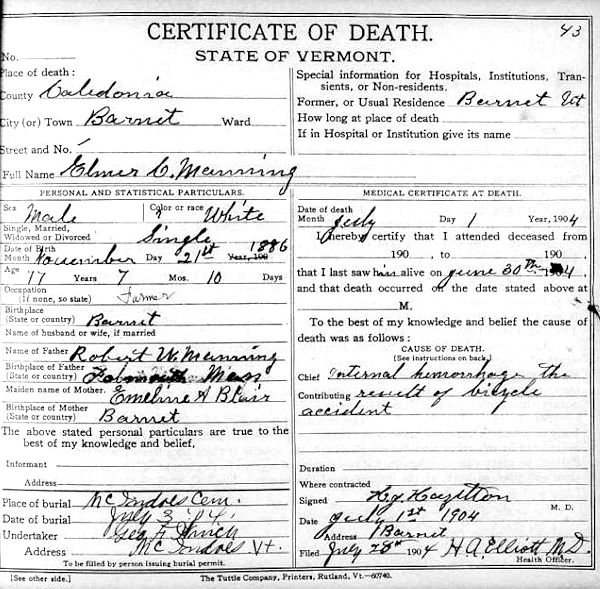 CERTIFICATE OF DEATH. 43
STATE OF VERMONT.
No.
Place of death:
County Caledonia
City (or) Town Barnet Ward
Street and No.
Full Name Elmer C. Manning
Special information for Hospitals, Institutions, Transients, or Non-residents.
Former, or Usual Residence Barnet Vt
How long at place of death
If in Hospital or Institution give its name
PERSONAL AND STATISTICAL PARTICULARS.
Sex Male Color or race White
Single, Married, Widowed or Divorced Single
Date of Birth 1886
Month November Day 21st Year, 190
Age 17 Years 7 Mos. 10 Days
Occupation (If none, so state) Farmer
Birthplace (State or country) Barnet
Name of husband or wife, if married
Name of Father Robert W. Manning
Birthplace of Father (State or country) Falmouth Mass
Maiden name of Mother. Emeline A Blair
Birthplace of Mother (State or country) Barnet
The above stated personal particulars are true to the best of my knowledge and belief,
Informant
Address
Place of burial McIndoes Cem.
Date of burial July 3 '04.
Undertaker Geo F.
Address McIndoes Vt.
To be filled by person issuing burial permit.
MEDICAL CERTIFICATE AT DEATH.
Date of death
Month July Day 1 Year, 1904
I hereby certify that I attended deceased from
190 , to 190 ,
that I last saw him alive on June 30th 1904.
and that death occurred on the date stated above at
M.
To the best of my knowledge and belief the cause of death was as follows:
CAUSE OF DEATH.
(See instructions on back.)
Chief Internal hemorrhage the
Contributing result of bicycle
accident
Duration
Where contracted
Signed H.J. Hazelton M. D.
Date July 1st 1904
Address Barnet
Filed July 28th 1904 H.A. Elliott M.D.
Health Officer.
[See other side.] The Tuttle Company, Printers, Rutland, Vt.—60740.